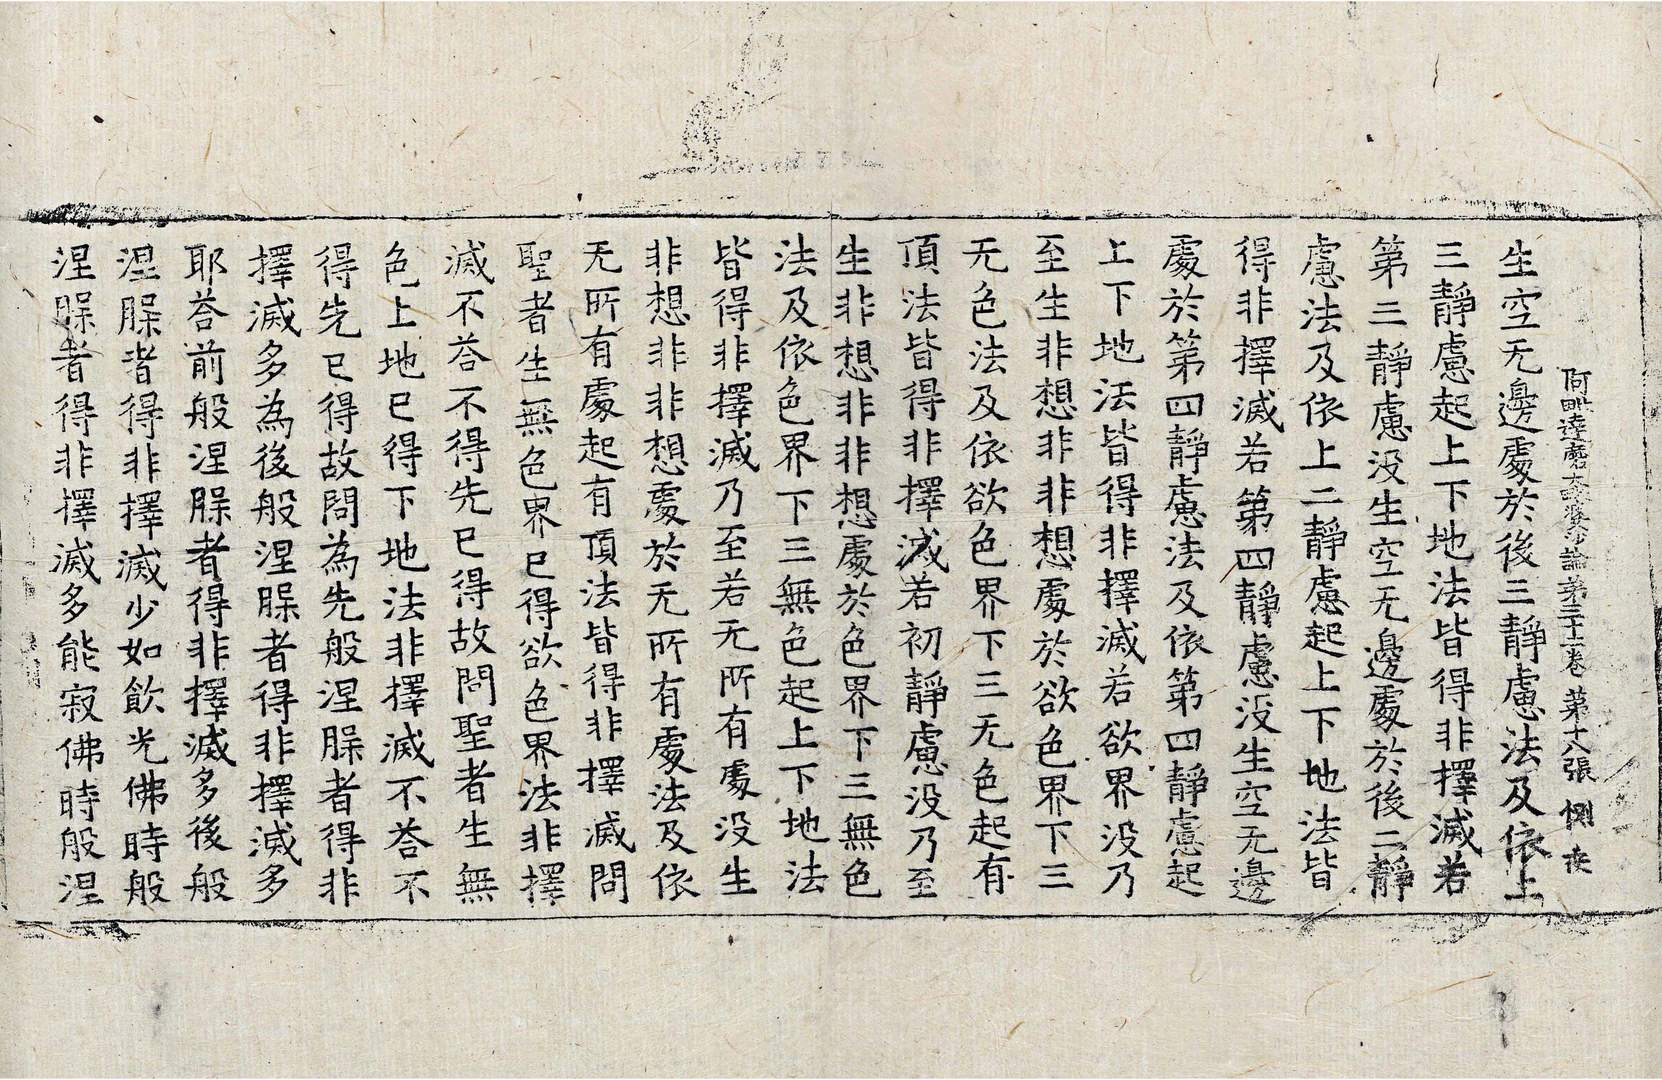 阿毗達磨大毗婆沙論第三十二卷 第十八張 惻 夜
生空无邊處於後三靜慮法及依上
三靜慮起上下地法皆得非擇滅若
第三靜慮没生空无邊處於後二靜
慮法及依上二靜慮起上下地法皆
得非擇滅若第四靜慮没生空无邊
處於第四靜慮法及依第四靜慮起
上下地法皆得非擇滅若欲界没乃
至生非想非非想處於欲色界下三
无色法及依欲色界下三无色起有
頂法皆得非擇滅若初靜慮没乃至
生非想非非想處於色界下三無色
法及依色界下三無色起上下地法
皆得非擇滅乃至若无所有處没生
非想非非想處於无所有處法及依
无所有處起有頂法皆得非擇滅問
聖者生無色界已得欲色界法非擇
滅不荅不得先已得故問聖者生無
色上地已得下地法非擇滅不荅不
得先已得故問為先般涅槃者得非
擇滅多為後般涅槃者得非擇滅多
耶荅前般涅槃者得非擇滅多後般
涅槃者得非擇滅少如飲光佛時般
涅槃者得非擇滅多能寂佛時般涅